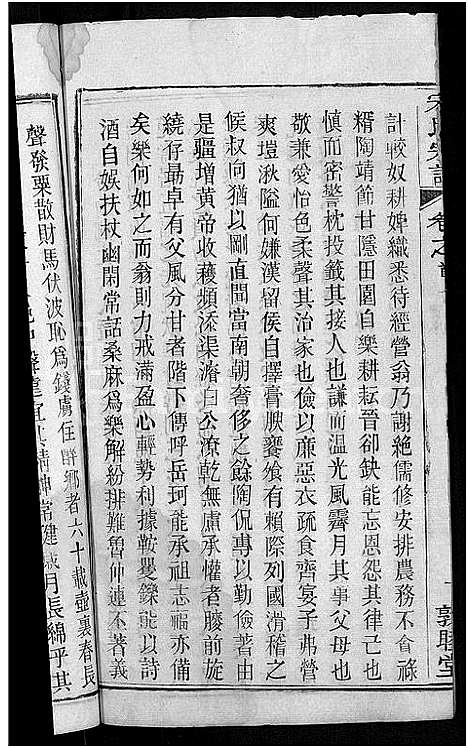 宋氏宗譜
卷之首
敦睦堂
計較奴耕婢織悉待經營翁乃謝絕儒修安排農務不貪祿
糈陶靖節甘隱田園自樂耕耘晉卻缺能忘恩怨其律己也
慎而密警枕投籤其接人也謙而溫光風霽月其事父母也
敬兼愛怡色柔聲其治家也儉以廉惡衣疏食齊宴子弗營
爽塏湫隘何嫌漢留侯自擇膏腴饔飧有賴際列國滑稽之
候叔向猶以剛直聞當南朝奢侈之餘陶侃專以勤儉著由
是疆增黃帝收穫頻添渠濬白公潦乾無慮承懽者膝前旋
繞仔勗卓有父風分甘者階下傳呼岳珂能承祖志福亦備
矣樂何如之而翁則力戒滿盈心輕勢利據鞍矍鑠能以詩
酒自娛扶杖幽閑常話桑麻為樂解紛排難魯仲連不著義
聲發粟散財馬伏波恥為錢虜住辭鄉者六十載壺裏春長
精神常健歲月長綿乎其